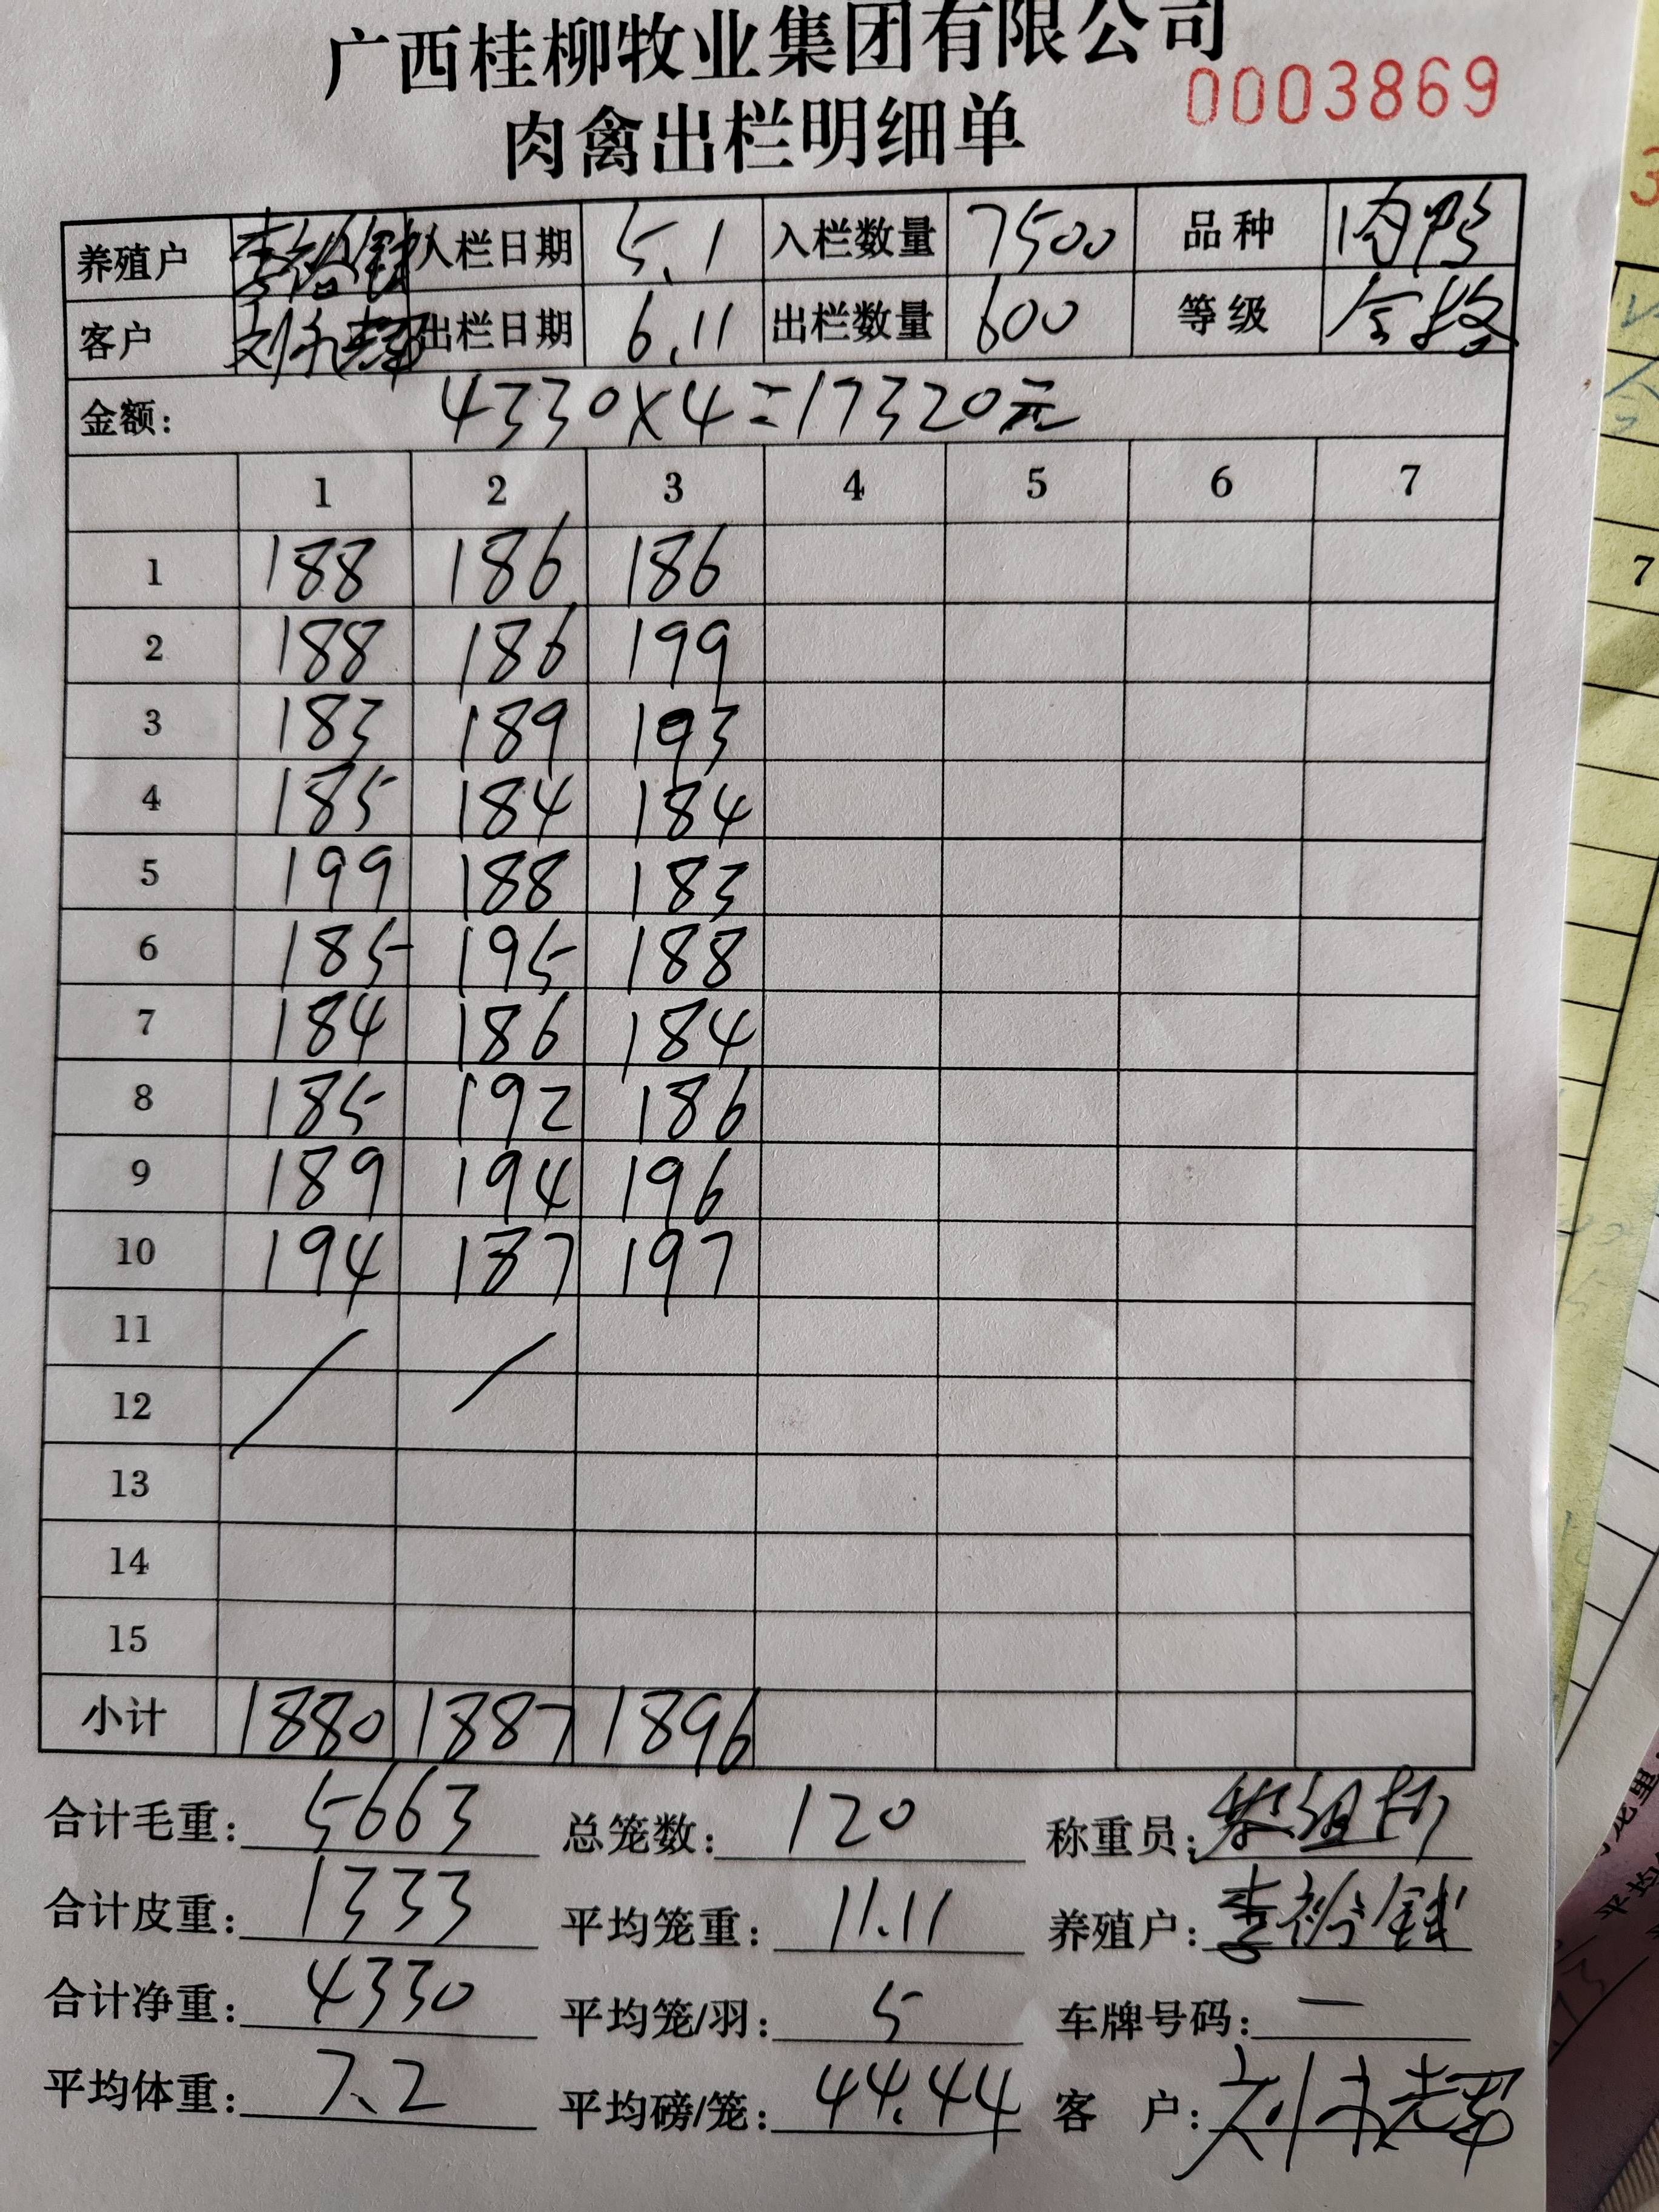 广西桂柳牧业集团有限公司
0003869
肉禽出栏明细单
养殖户 李裕钱 入栏日期 5.1 入栏数量 7500 品种 肉鸭
客户 出栏日期 6.11 出栏数量 600 等级
金额: 4330×4=17320元
1 2 3 4 5 6 7
1 188 186 186
2 188 186 199
3 183 189 193
4 185 184 184
5 199 188 183
6 185 195 188
7 184 186 184
8 185 192 186
9 189 194 196
10 194 187 197
11
12
13
14
15
小计 1880 1887 1896
合计毛重: 5663 总笼数: 120 称重员:
合计皮重: 1333 平均笼重: 11.11 养殖户: 李裕钱
合计净重: 4330 平均笼/羽: 5 车牌号码: —
平均体重: 7.2 平均磅/笼: 44.44 客户:
7